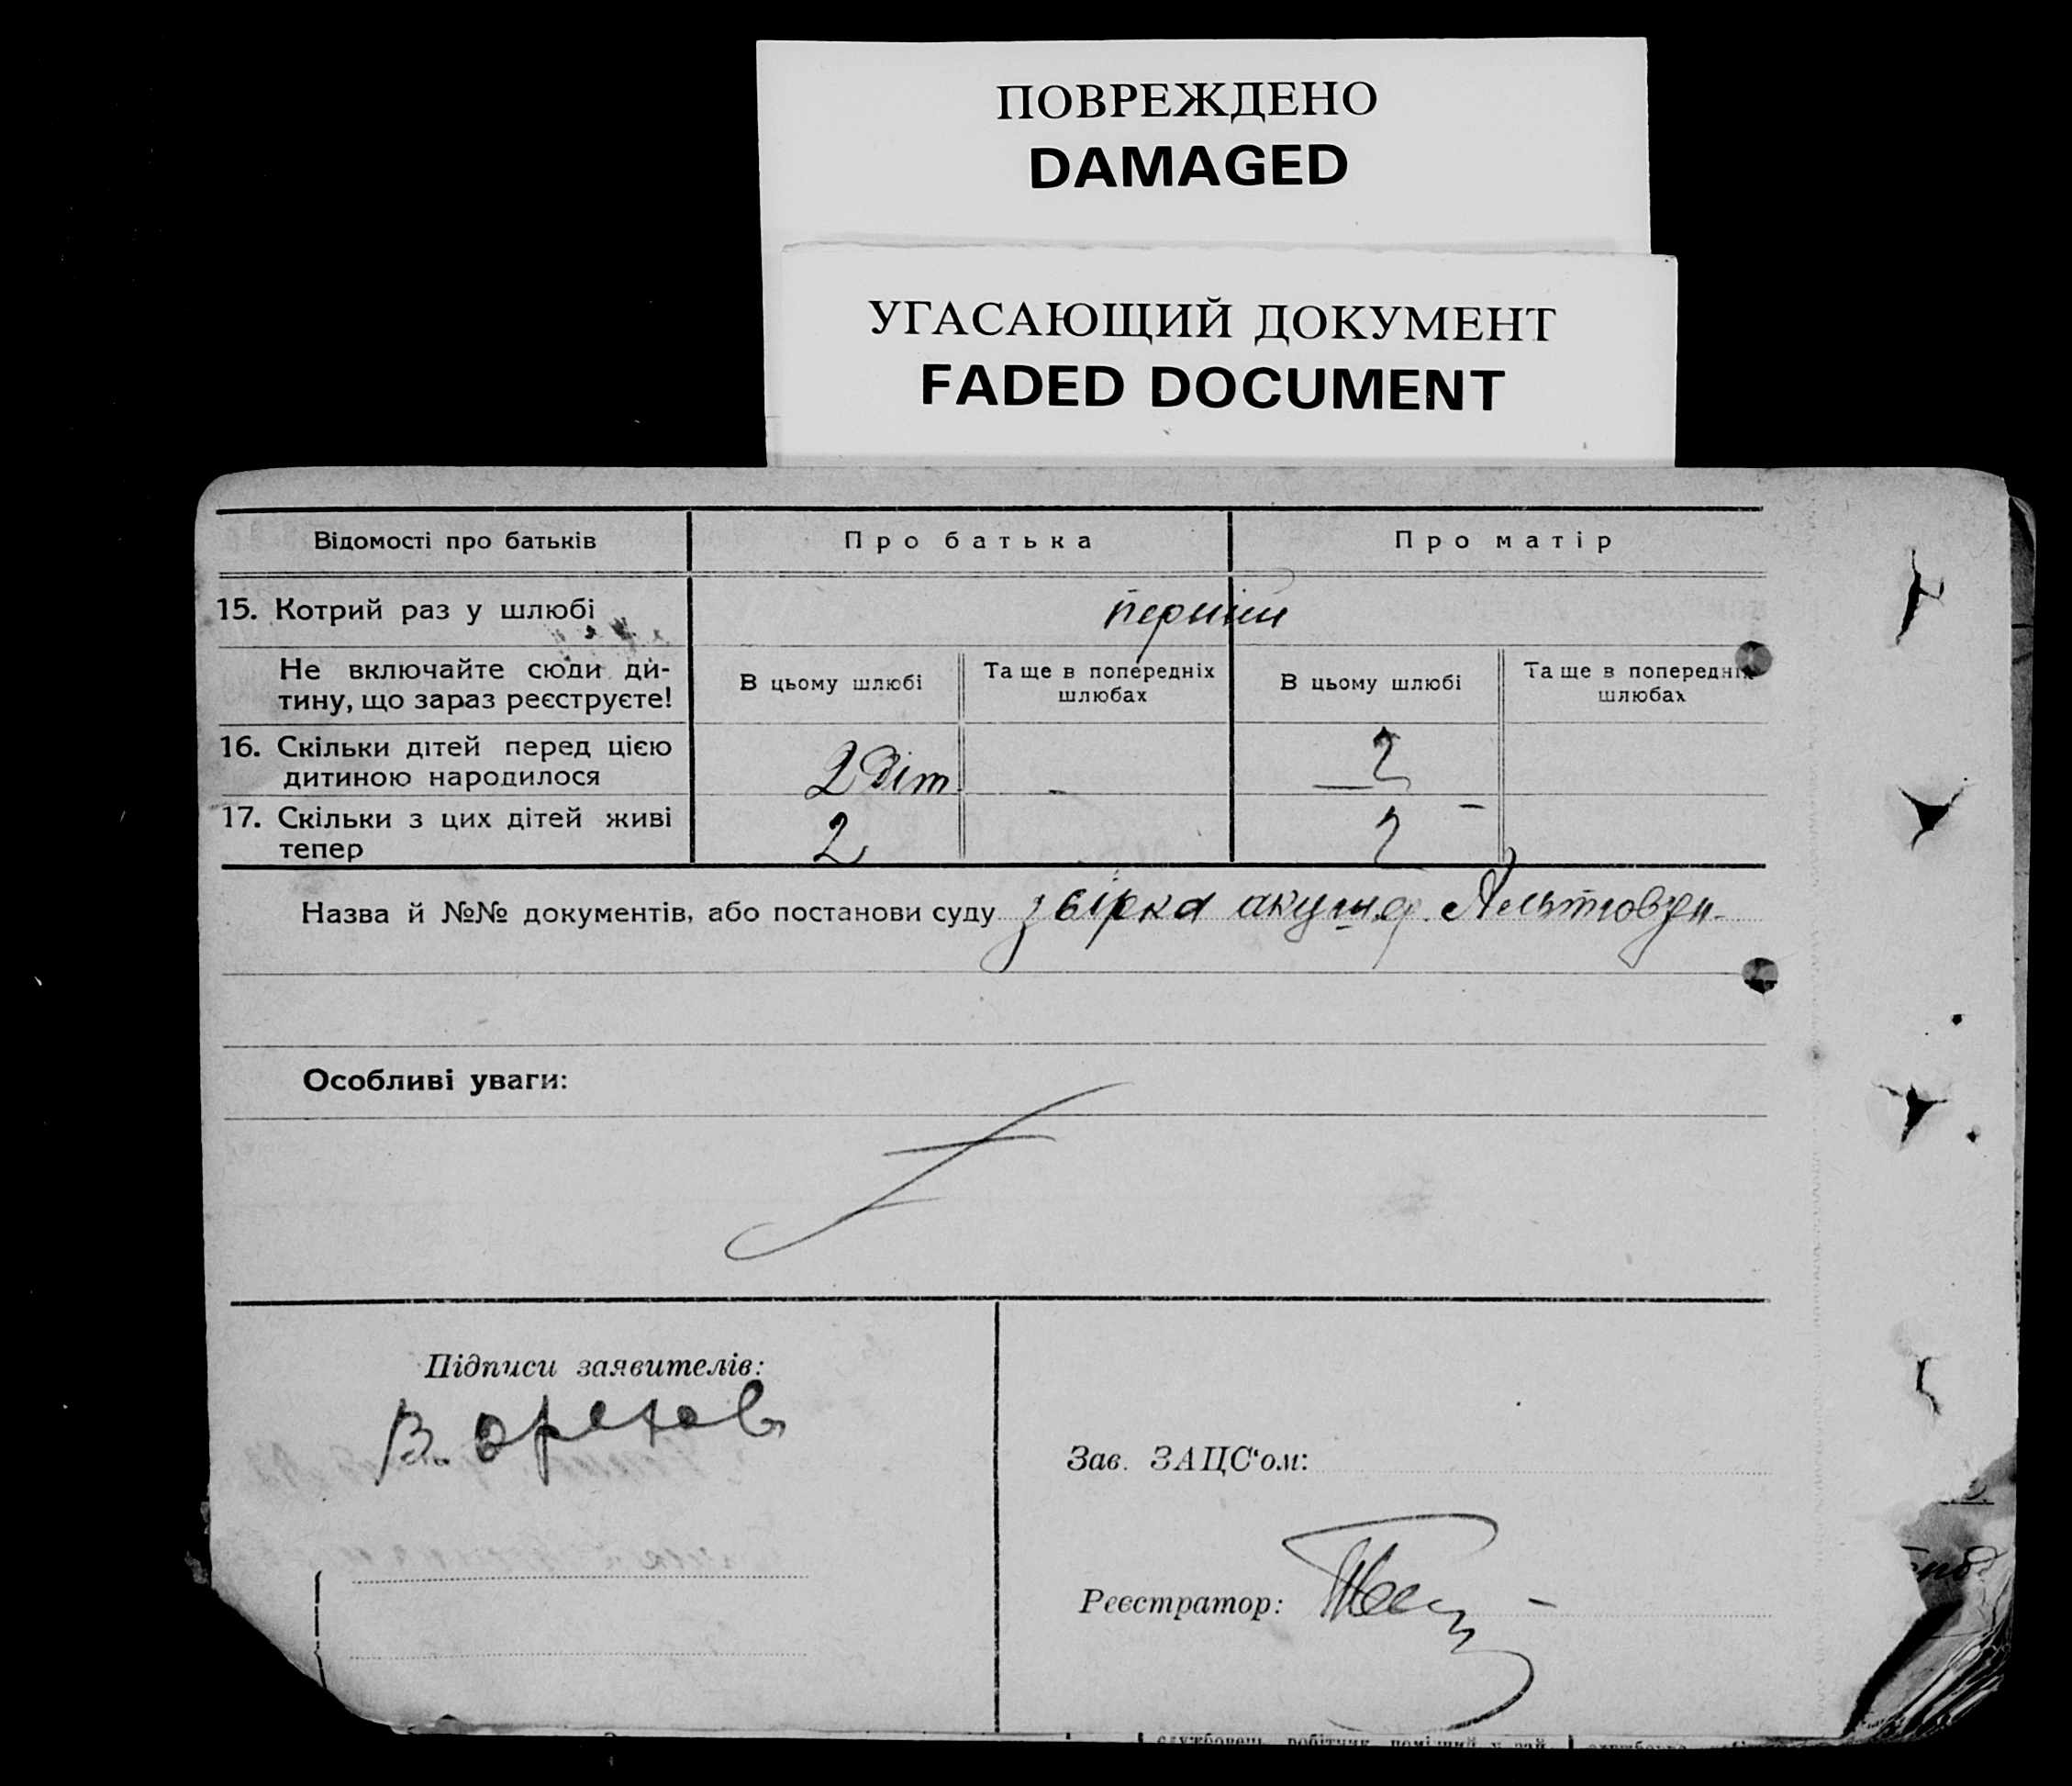 ПОВРЕЖДЕНО
DAMAGED
УГАСАЮЩИЙ ДОКУМЕНТ
FADED DOCUMENT
Відомості про батьків
Про батька
Про матір
15. Котрий раз у шлюбі
перший
Не включайте сюди ди-
тину, що зараз реєструєте!
В цьому шлюбі
Та ще в попередніх
шлюбах
В цьому шлюбі
Та ще в попередніх
шлюбах
16. Скільки дітей перед цією
дитиною народилося
2 діт
-
2
17. Скільки з цих дітей живі
тепер
2
2
-
Назва й №№ документів, або постанови суду
Особливі уваги:
Підписи заявителів:
В. Орехов
Зав. ЗАЦС'ом:
Реєстратор:
службовець, робітник